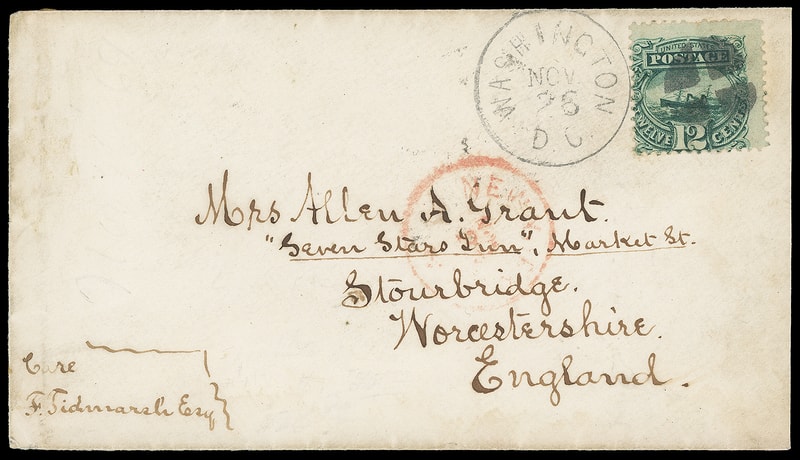 WASHINGTON
NOV
26
D.C.
UNITED STATES
POSTAGE
TWELVE 12 CENTS
NEW
Mrs Allen A. Grant.
"Seven Stars Inn", Market St.
Stourbridge.
Worcestershire.
England.
Care
F. Tidmarsh Esq